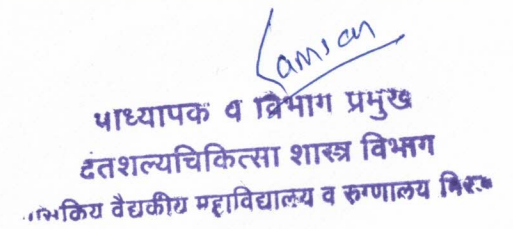 प्राध्यापक व विभाग प्रमुख
दंतशल्यचिकित्सा शास्त्र विभाग
वैद्यकीय महाविद्यालय व रुग्णालय